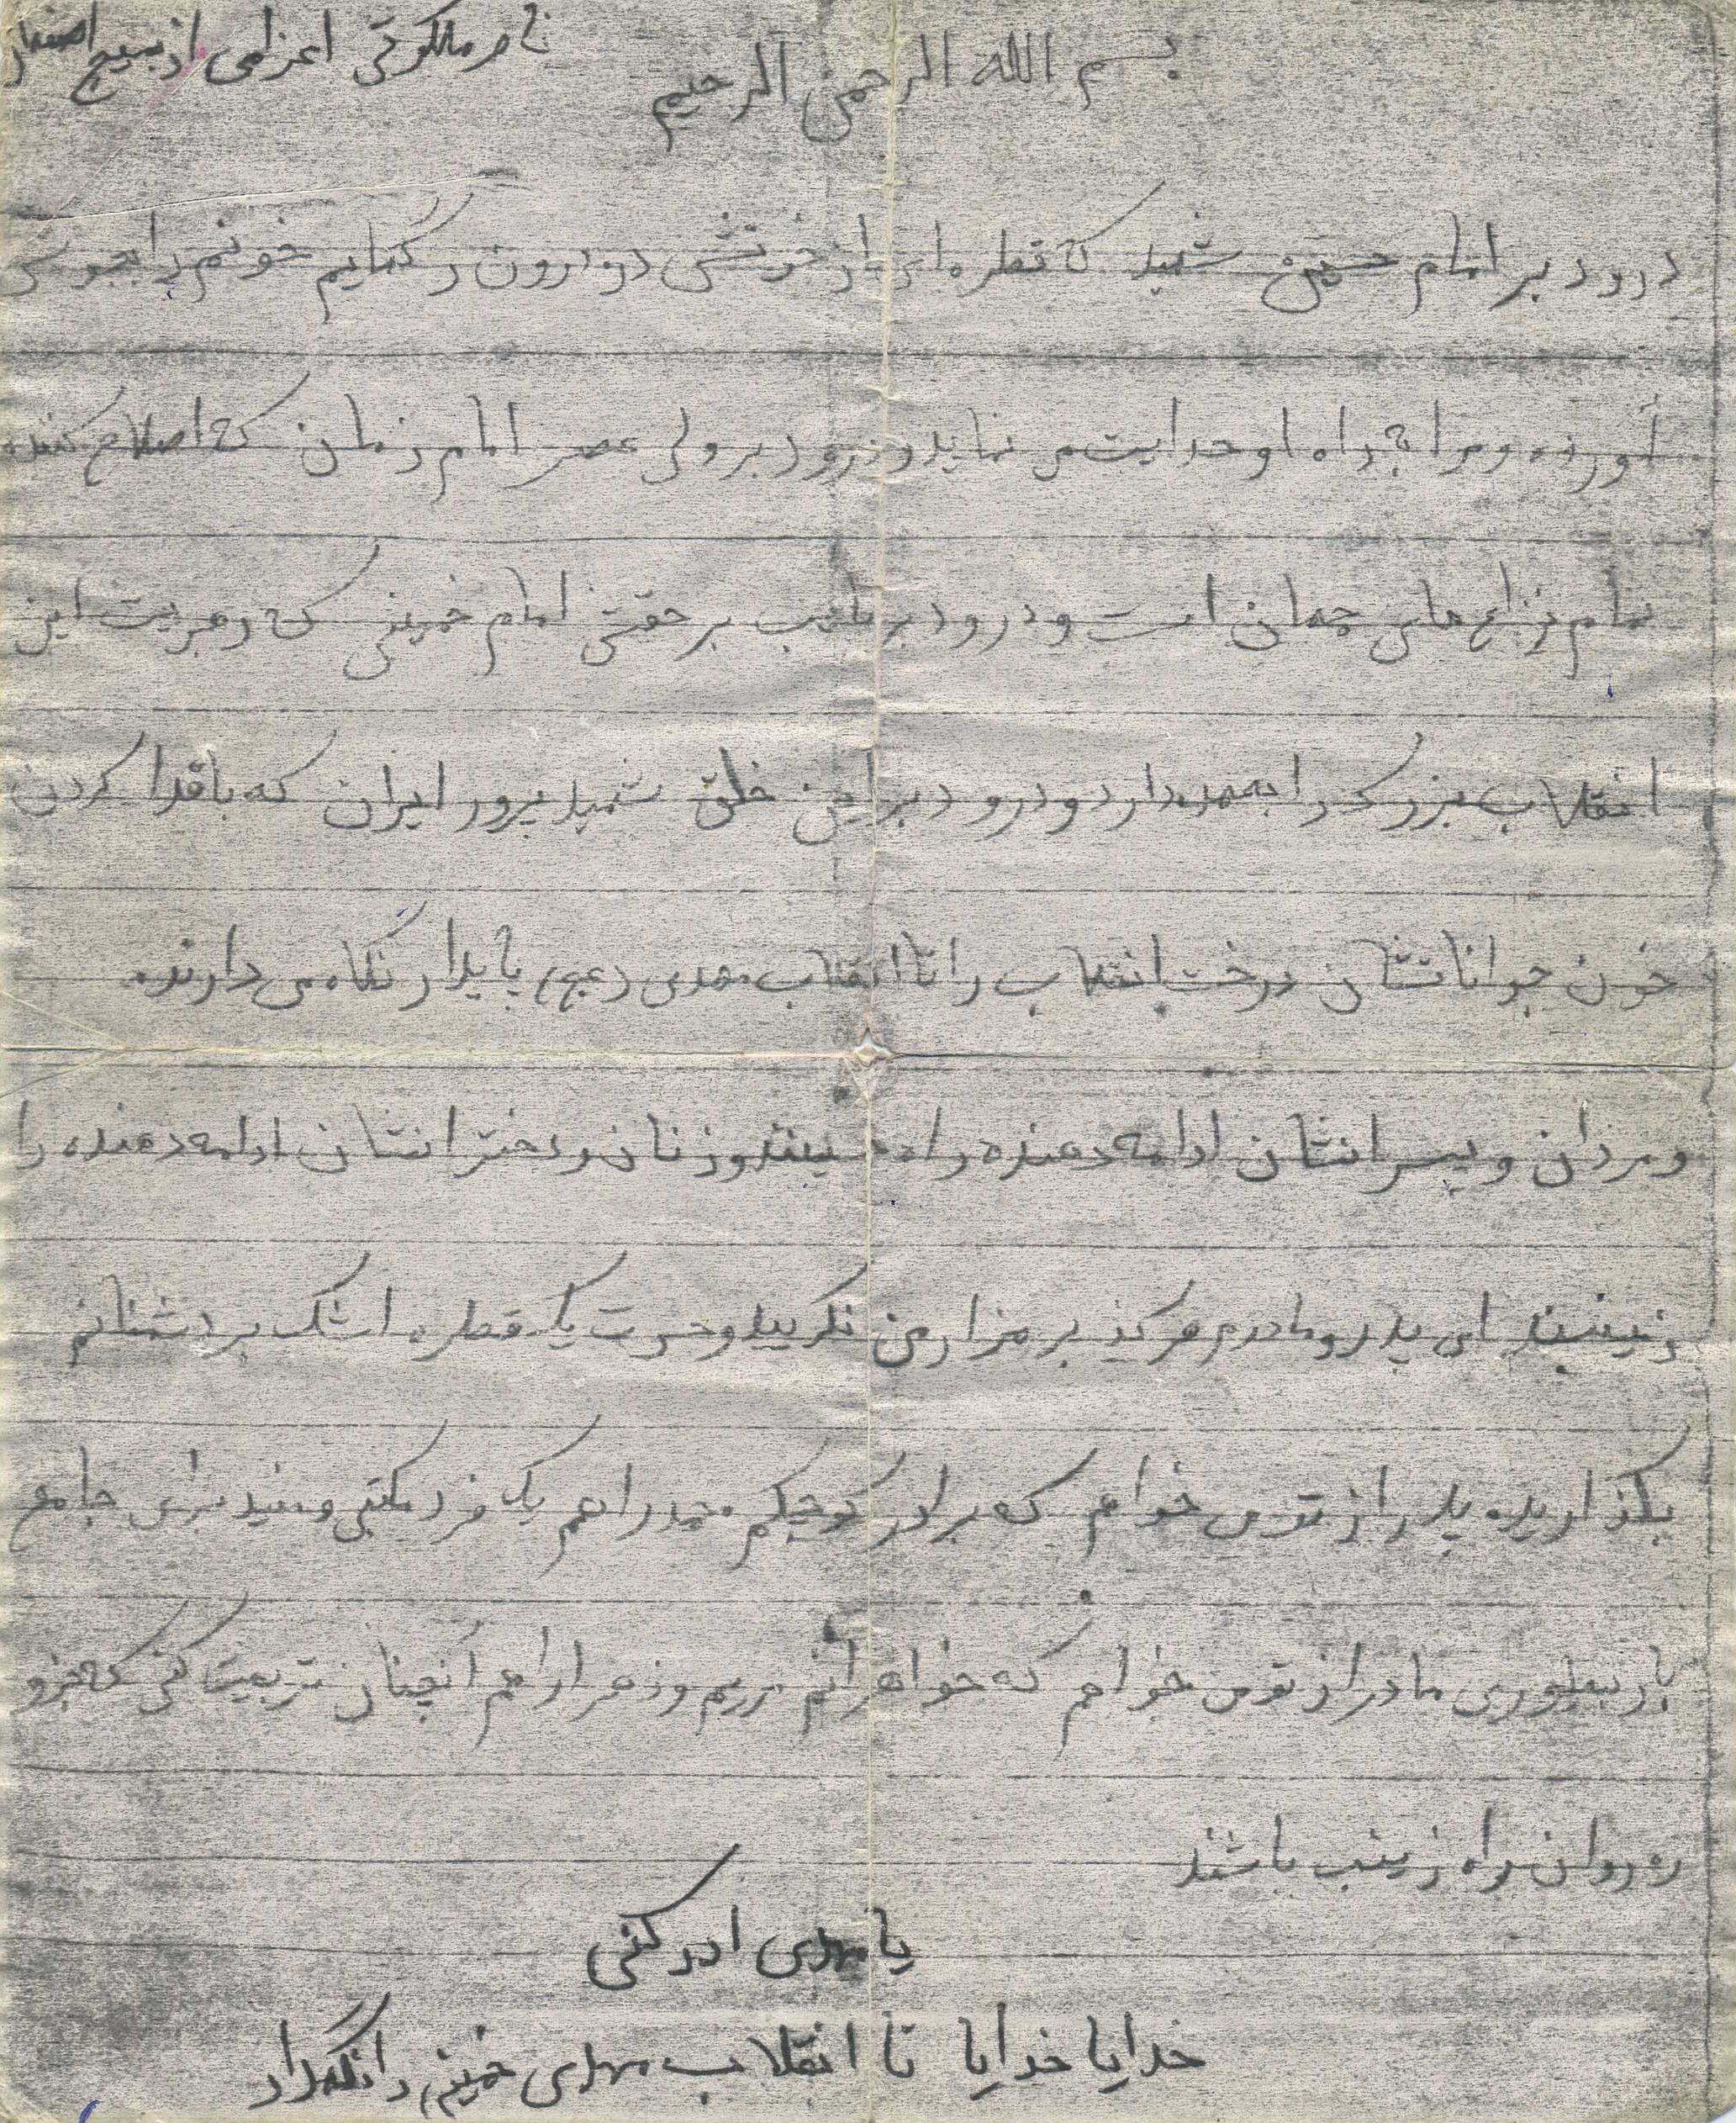 بسم الله الرحمن الرحیم
ناصر ملکوتی اعزامی از بسیج اصفهان
درود بر امام حسین شهید که قطره ای از خونش در درون رگهایم خونم را بجوش
آورده و مرا به راه او حدایت می نماید و درود بر ولی عصر امام زمان که اصلاح کننده
تمام نزاع های جهان است و درود بر نائب بر حقش امام خمینی که رهبریت این
انقلاب بزرگ را بعهده دارد و درود بر این خلق شهید پرور ایران که با فدا کردن
خون جوانانشان درخت انقلاب را تا انقلاب مهدی (عج) پایدار نگاه می دارند.
ومردان و پسرانشان ادامه دهنده راه حسینند و زنان و دخترانشان ادامه دهنده را
زینبند ای پدر و مادرم هرگز بر مزار من نگریید و حسرت یک قطره اشک بر دشمنانم
بگذارید. پدر از تو می خواهم که برادر کوچکم محمد را هم یک فرد مکتبی و مفید برای جامعه
بار بیاوری مادر از تو می خواهم که خواهرانم مریم و زهرا را هم آنچنان تربیت کنی که جزو
ره روان راه زینب باشند
یا مهدی ادرکنی
خدایا خدایا تا انقلاب مهدی خمینی را نگهدار